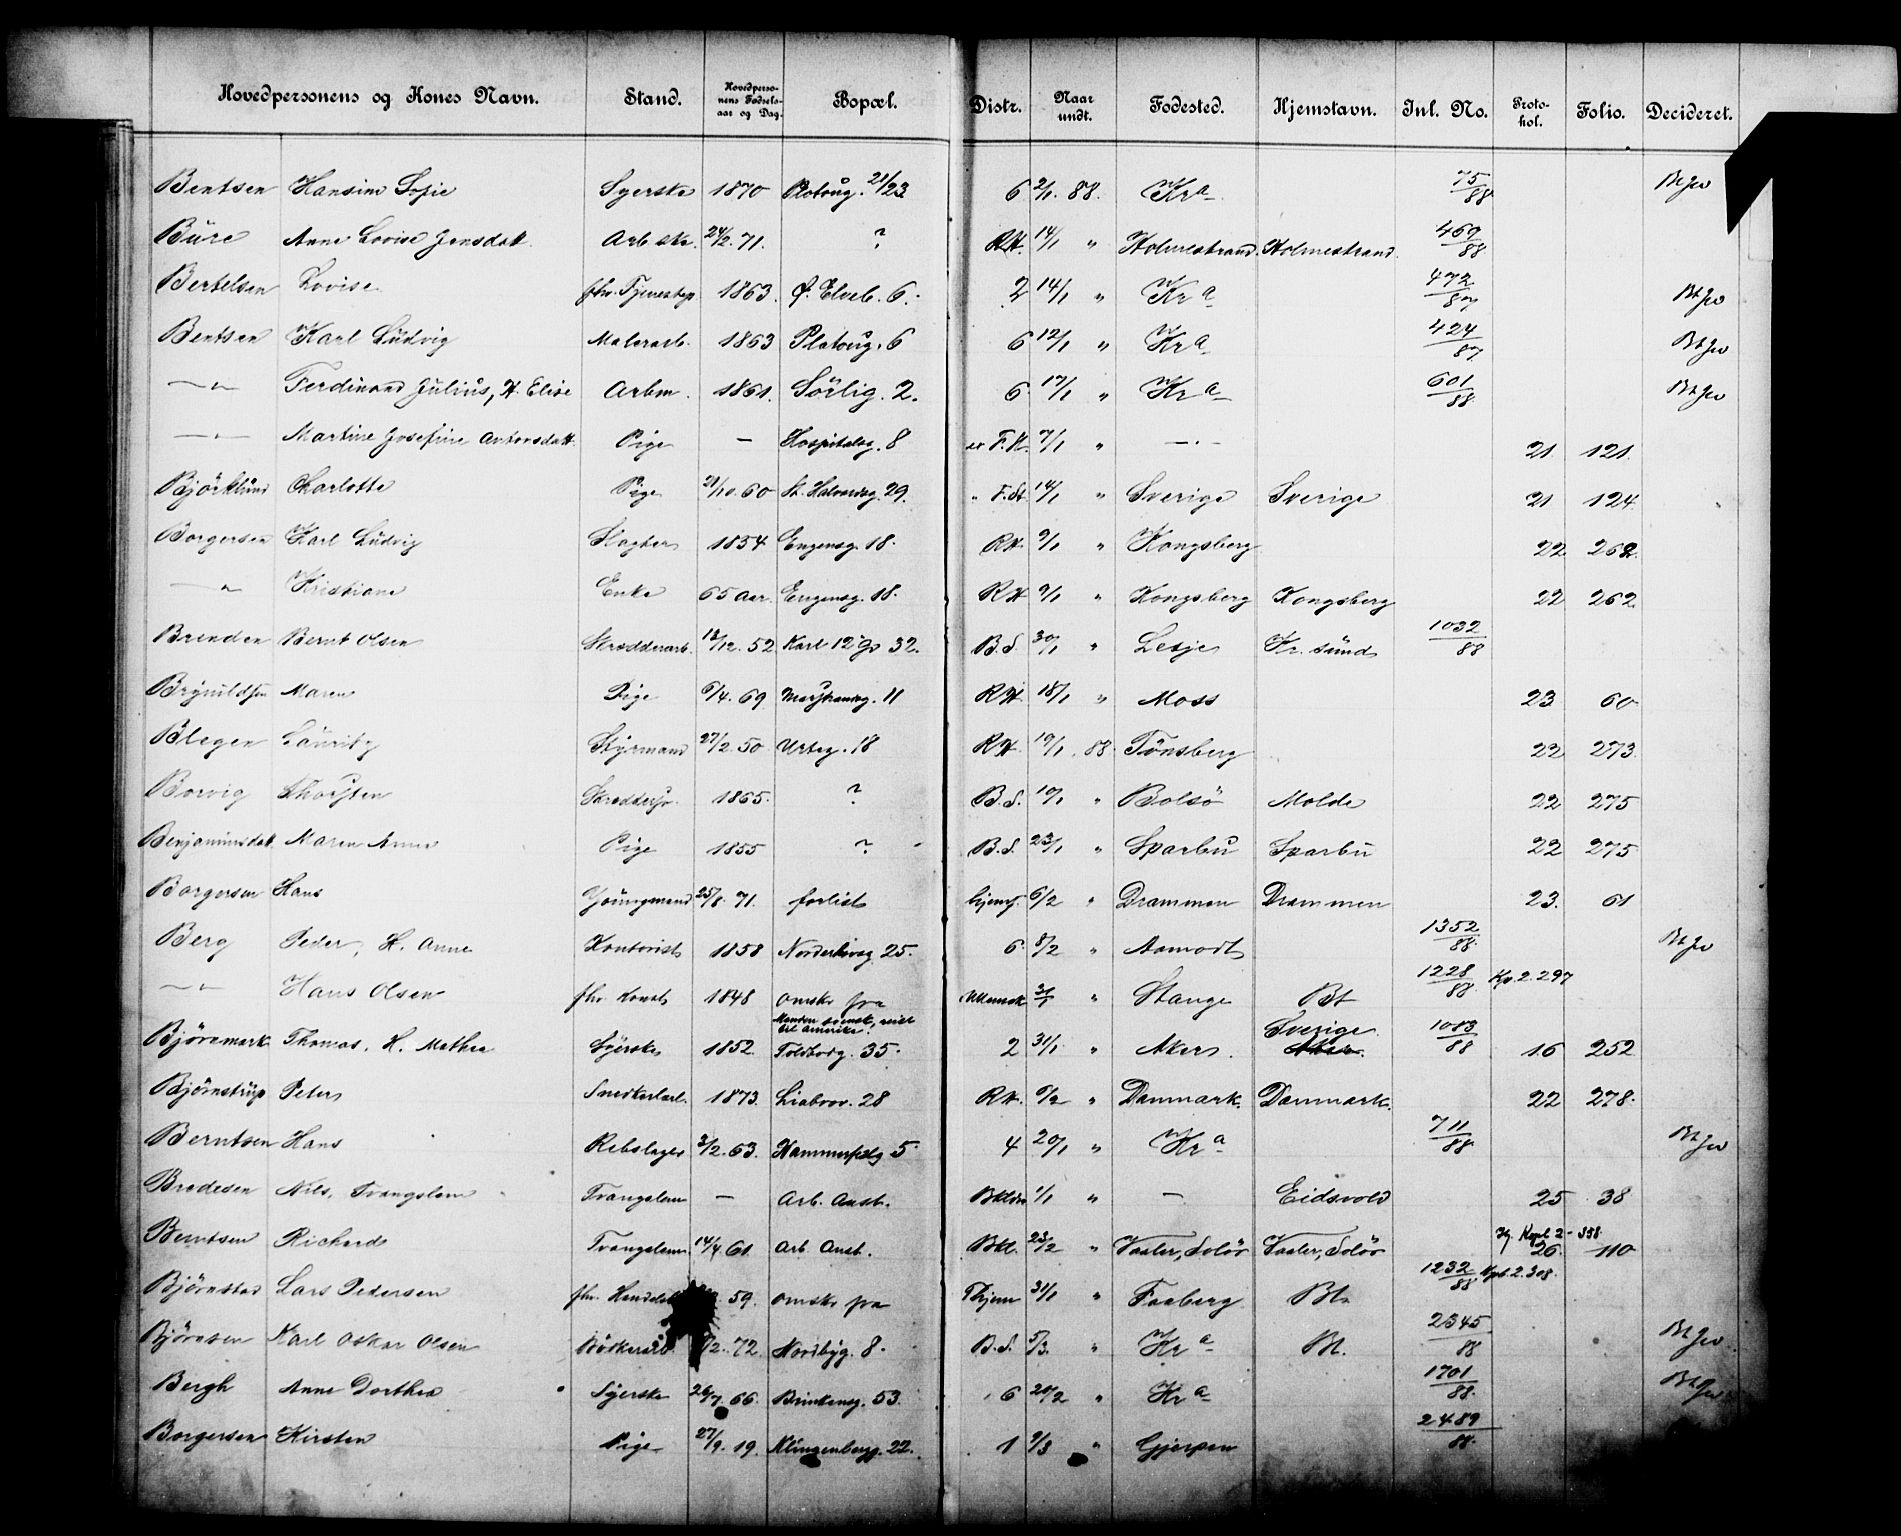 Hovedpersonens og Kones Navn. Stand. Hovedperso-nens Fødsels-aar og Dag. Bopæl. Distr. Naar undt. Fødested. Hjemstavn. Inl. No. Proto-kol. Folio. Decideret.
Bentsen Hansine Sofie Syerske 1870 Platoug. 21/23 6 2/1 88. Kra 75/88 Bt Jev
Bure Anne Lovise Jensdatt. Arb.ske. 24/2.71. ? RH. 14/1 " Holmestrand. Holmestrand. 469/88
Bertelsen Lovise 1863. Ø. Elveb. 6. 2 14/1 " Kra 472/87 Bt Jev
Bentsen Karl Ludvig Malerarb. 1863 Platoug. 6 6 12/1 " Kra 424/87 Bt Jev
—"— Ferdinand Julius, H. Elise Arbm. 1861. Sörlig. 2. 6 17/1 " Kra 601/88 Bt Jev
—"— Martine Josefine Antonsdatt. Pige — Hospitalsg. 8 F.H. 7/1 " —"— 21. 121.
Björklund Charlotte Pige 21/10.60 St. Halvardsg. 29. " F.St. 14/1 " Sverige Sverige 21 124
Borgersen Karl Ludvig Slagter 1854 Engensg. 18. RH. 9/1 " Kongsberg 22 262
—"— Kristiane Enke 65 Aar. Engensg. 18. RH 9/1 " Kongsberg Kongsberg 22 262
Brenden Bernt Olsen Skrædderarb. 12/12.52 Karl 12 Gs 32. B.S. 30/1 " Lesje Kr.sund 1032/88
Brynildsen Maren Pige 6/4.69 11 RH. 18/1 " Moss 23 60
Blegen Lauritz Styrmand 27/2.50 Urteg. 18 RH. 19/1 88. Tönsberg 22 273.
Borvig Thorsten Skræddersv. 1865. ? B.S. 19/1 " Bolsö Molde 22 275
Benjaminsdat. Maren Anna Pige 1855 ? B.S. 23/1 " Sparbu Sparbu 22 275
Borgersen Hans Youngmand 25/8.71. forlist hjemf. 6/2 " Drammen Drammen 23. 61
Berg Peder, H. Anne Kontorist 1858 Norderhovsg. 25. 6 8/2 " Aamodt 1352/88 Bt Jev
—"— Hans Olsen fhv. Konst. 1848 omskr fra " Stange Bt 1228/88 Kp. 2. 297
Manden svensk, reist til Amerika. Sverige
Björnmark Thomas, H. Mathea Syerske 1852. Toldbodg. 35. 2 31/1 " Aker. Aker. 1083/88 16 252
Björnstrup Peter Snedkerlærl. 1873. Liabrov. 28 RH. 9/2 " Danmark. Danmark. 22 278.
Berntsen Hans Rebslager 3/2.63. Hammerfestg. 5. 4 20/1 " Kra 711/88 Bt Jev
Bredesen Nils, Tvangslem Tvangslem — Arb. Anst. 1/1 " — Eidsvold 25 38
Berntsen Richard Tvangslem 14/4.61. Arb. Anst. Bkl. 23/2 " Vaaler, Solör Vaaler, Solör Kopl 2-358 26. 110
Björnstad Lars Pedersen fhv. 59. omskr fra Thjem 31/1 " Faaberg Bt. 1232/88 Kpt. 2. 308.
Björnsen Karl Oskar Olsen Bödkerarb. /2.72. Nordbyg. 8. B.S. 5/3. " Kra Bt. 2345/88 Bt Jev
Bergh Anne Dorthea Syerske 26/7.66. Brinkensg. 53. 6 20/2 " Kra 1701/88. Bt Jev
Borgersen Kirsten Pige 27/9.19. Klingenbergg. 22. 1 9/3 " Gjerpen 2489/88.